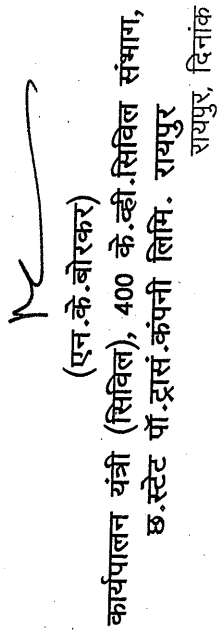 (एन.के.बोरकर)
कार्यपालन यंत्री (सिविल), 400 के.व्ही.सिविल संभाग,
छ.स्टेट पॉ.ट्रासं.कंपनी लिमि. रायपुर
रायपुर, दिनांक